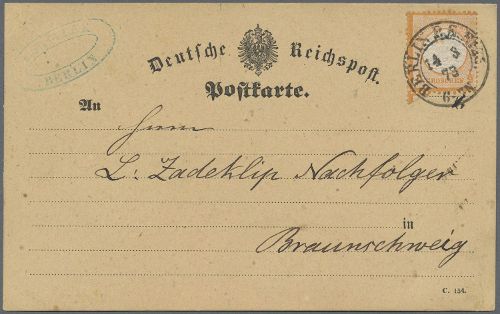 BERLIN
Deutsche Reichspost.
Postkarte.
BERLIN P.E.
14 3
73
6-7 N
GROSCHEN
An
Herrn
L: Zadeklip Nachfolger
in
Braunschweig
C. 154.